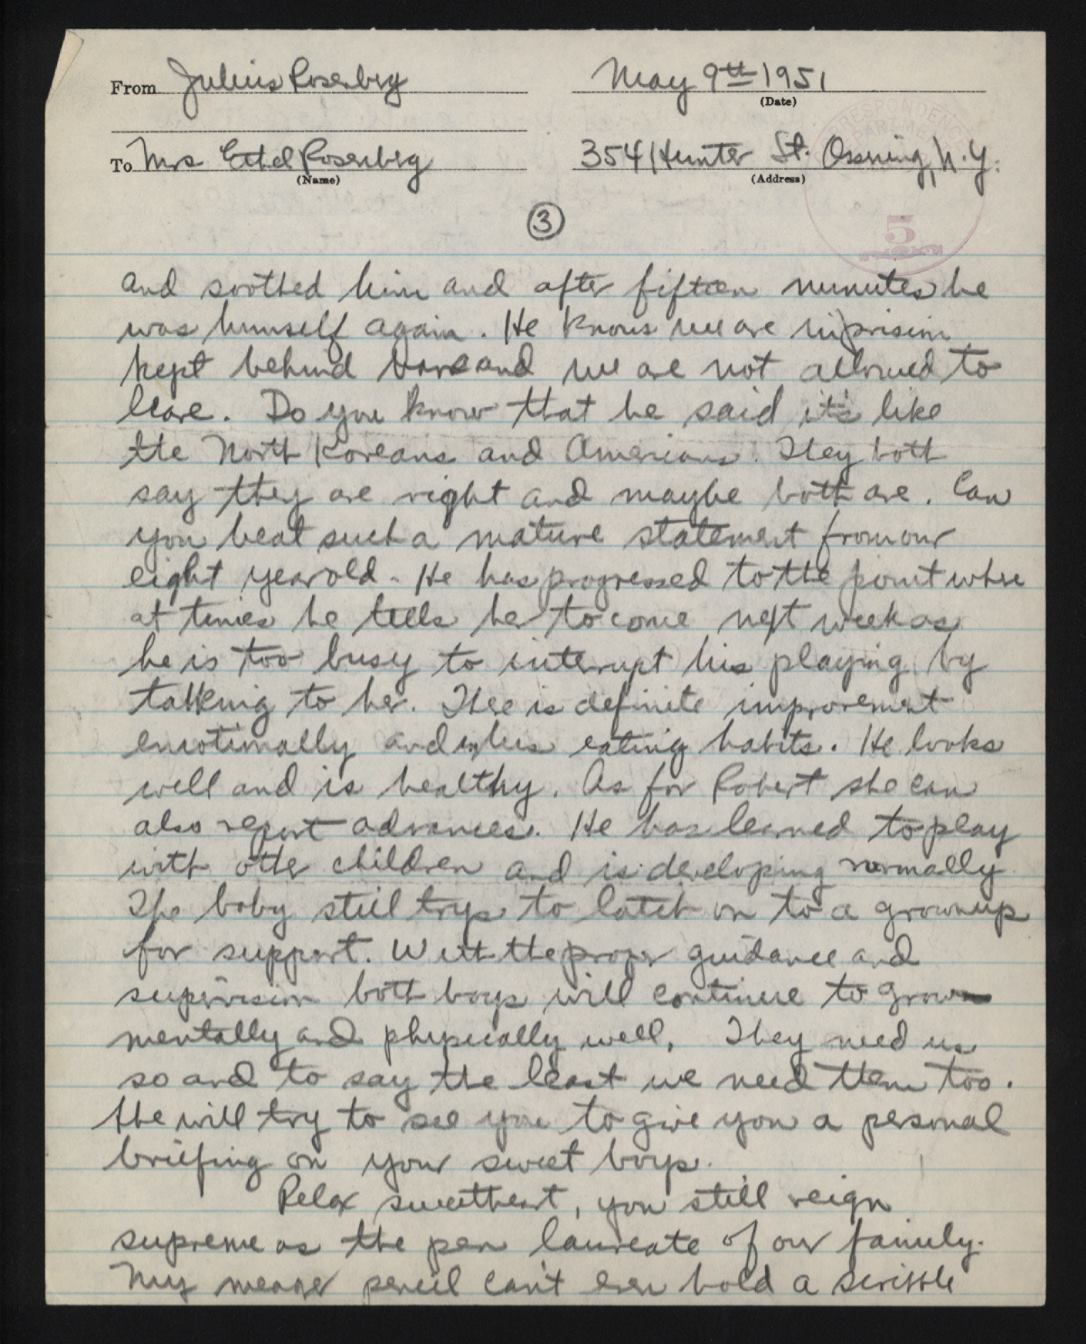 From Julius Rosenberg
May 9th 1951
(Date)
To Mrs Ethel Rosenberg
(Name)
354 Hunter St. Ossining, N.Y.
(Address)
CORRESPONDENCE
DEPARTMENT
5
3
and soothed him and after fifteen minutes he
was himself again. He knows we are in prison
kept behind bars and we are not allowed to
leave. Do you know that he said it's like
the North Koreans and Americans. They both
say they are right and maybe both are. Can
you beat such a mature statement from our
eight year old. He has progressed to the point where
at times he tells her to come next week as
he is too busy to interrupt his playing by
talking to her. There is definite improvement
emotionally and in his eating habits. He looks
well and is healthy. As for Robert she can
also report advances. He has learned to play
with other children and is developing normally
The baby still trys to latch on to a grownup
for support. With the proper guidance and
supervision both boys will continue to grow
mentally and physically well. They need us
so and to say the least we need them too.
She will try to see you to give you a personal
briefing on your sweet boys.
Relax sweetheart, you still reign
supreme as the pen laureate of our family.
My meager pencil can't even hold a scribble